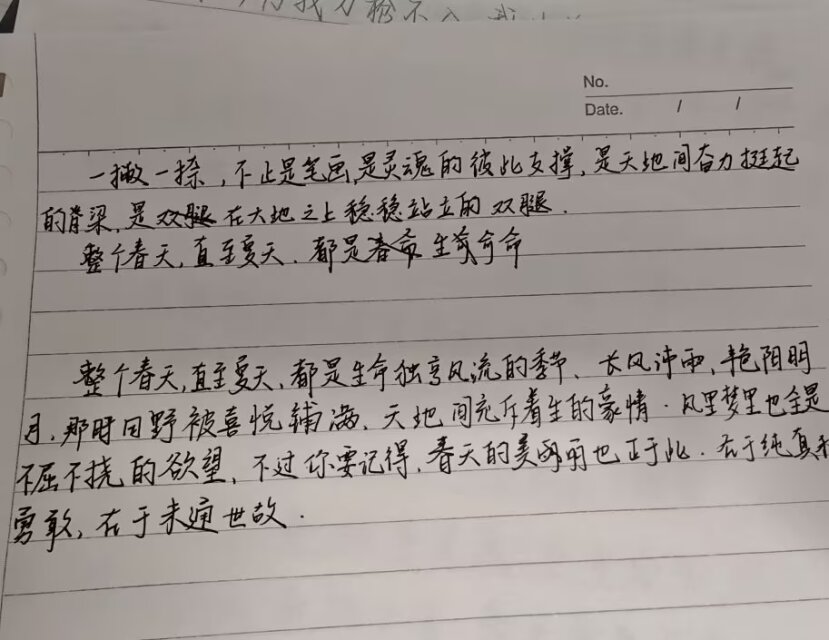 No.
Date. / /
一撇一捺，不止是笔画，是灵魂的彼此支撑，是天地间奋力挺起
的脊梁，是双腿在大地之上稳稳站立的双腿．
整个春天，直至夏天．都是春命生命
整个春天，直至夏天，都是生命独享风流的季节、长风沛雨，艳阳明
月，那时田野被喜悦铺满、天地间充斥着生的豪情．风里梦里也全是
不屈不挠的欲望，不过你要记得，春天的美丽也正于此．在于纯真和
勇敢，在于未通世故．